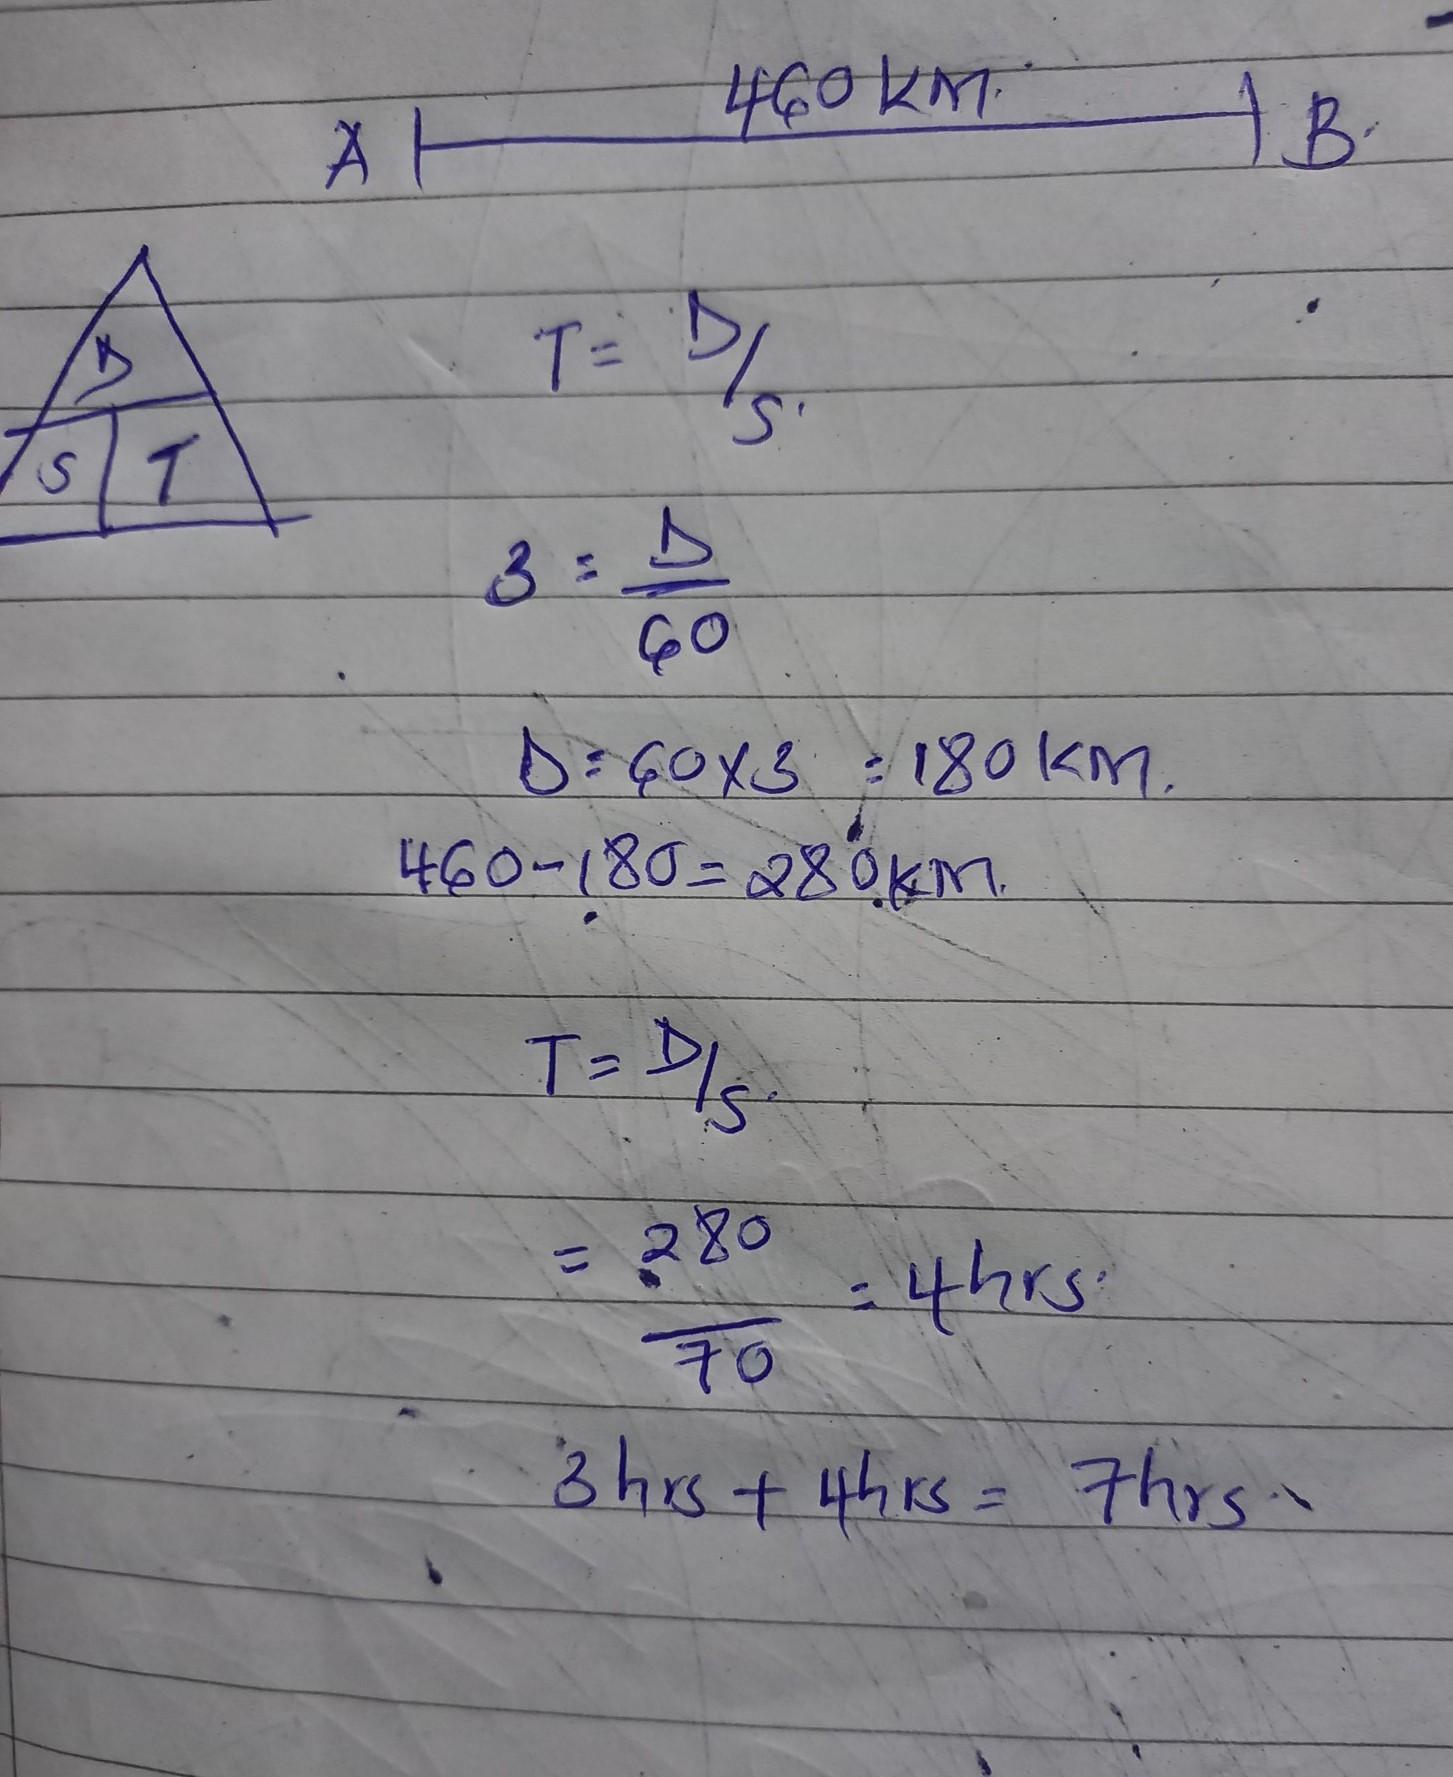 460 KM.
A B.
D
S T
T = D/S.
3 = D
60
D = 60 x 3 = 180 KM.
460 - 180 = 280 KM.
T = D/S.
= 280 = 4 hrs.
70
3 hrs + 4 hrs = 7 hrs.